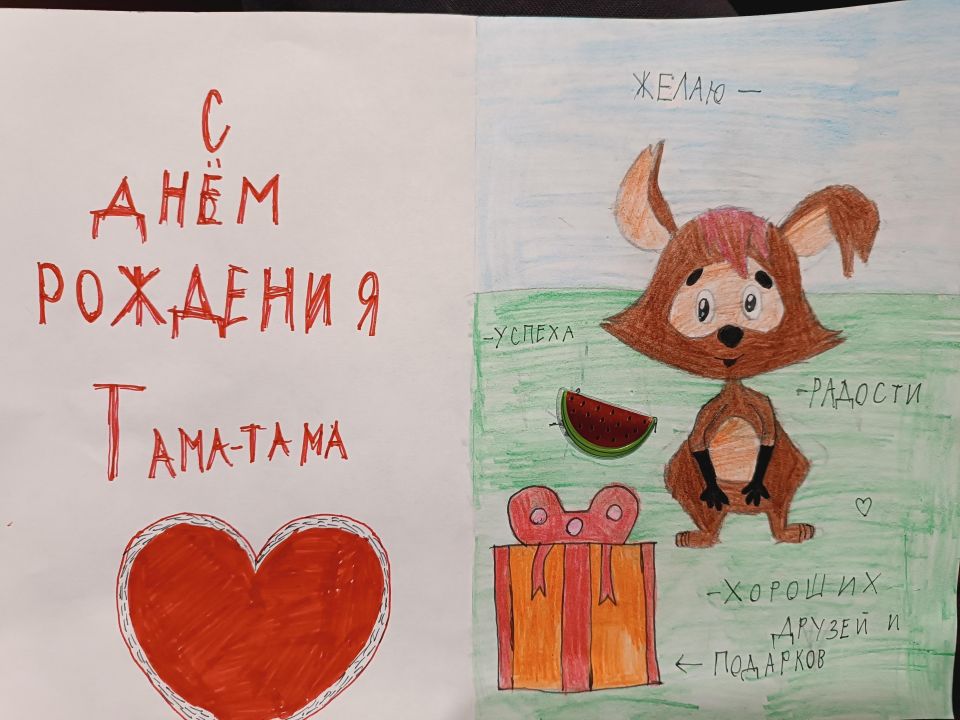 С
ДНЁМ
РОЖДЕНИЯ
ТАМА-ТАМА
ЖЕЛАЮ —
-УСПЕХА
-РАДОСТИ
-ХОРОШИХ
ДРУЗЕЙ И
← ПОДАРКОВ